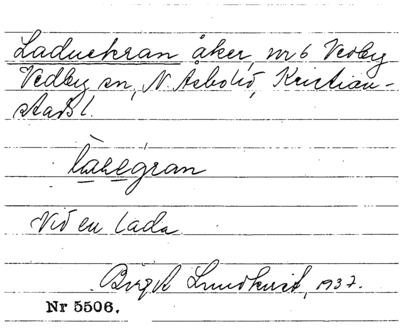 Laduekran åker, nr 6 Vedby
Vedby sn, N. Åsbo hd, Kristian-
stads l.
Vid en lada
Birgit Lundkvist, 1937.
Nr 5506.